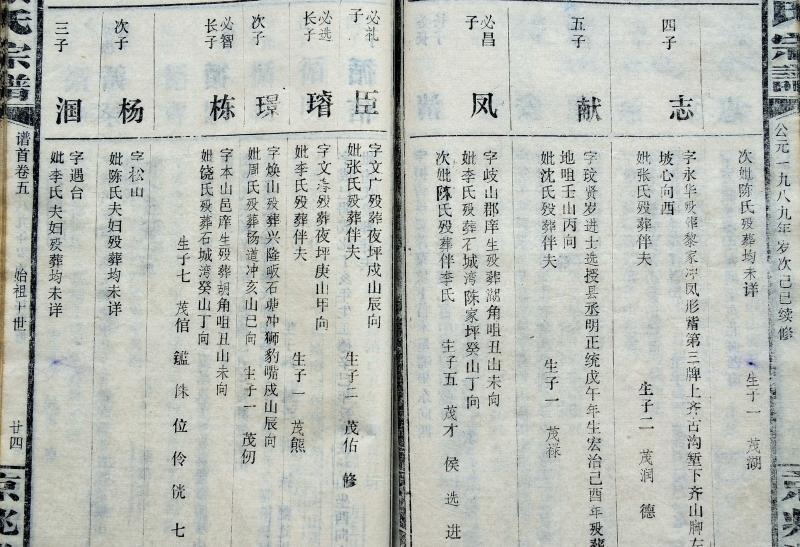 公元一九八九年岁次己巳续修
次妣陈氏殁葬均未详
生子一 茂湖
四子
志
字永华殁葬黎家冲凤形嘴第三牌上齐古沟堑下齐山脚左
坡心向西
妣张氏殁葬伴夫
生子二 茂润 德
五子
献
字玟贤岁进士选授县丞明正统戊午年生宏治己酉年殁葬
地咀壬山丙向
妣沈氏殁葬伴夫
生子一 茂禄
必昌
子
凤
字歧山郡庠生殁葬湖角咀丑山未向
妣李氏殁葬石城湾陈家坪癸山丁向
次妣陈氏殁葬伴李氏
生子五 茂才 侯 选 进
必礼
子
臣
字文广殁葬夜坪戍山辰向
妣张氏殁葬伴夫
生子二 茂佑 修
必选
长子
璿
字文海殁葬夜坪庚山甲向
妣李氏殁葬伴夫
生子一 茂熊
次子
璟
字焕山殁葬兴隆畈石塘冲狮豹嘴戍山辰向
妣周氏殁葬杨道冲亥山巳向
生子一 茂仞
必智
长子
栋
字本山邑庠生殁葬胡角咀丑山未向
妣饶氏殁葬石城湾癸山丁向
生子七 茂倌 鑑 侏 位 伶 侊 七
次子
杨
字松山
妣陈氏夫妇殁葬均未详
三子
涃
字遇台
妣李氏夫妇殁葬均未详
氏宗谱
谱首卷五
始祖十世
廿四
京兆